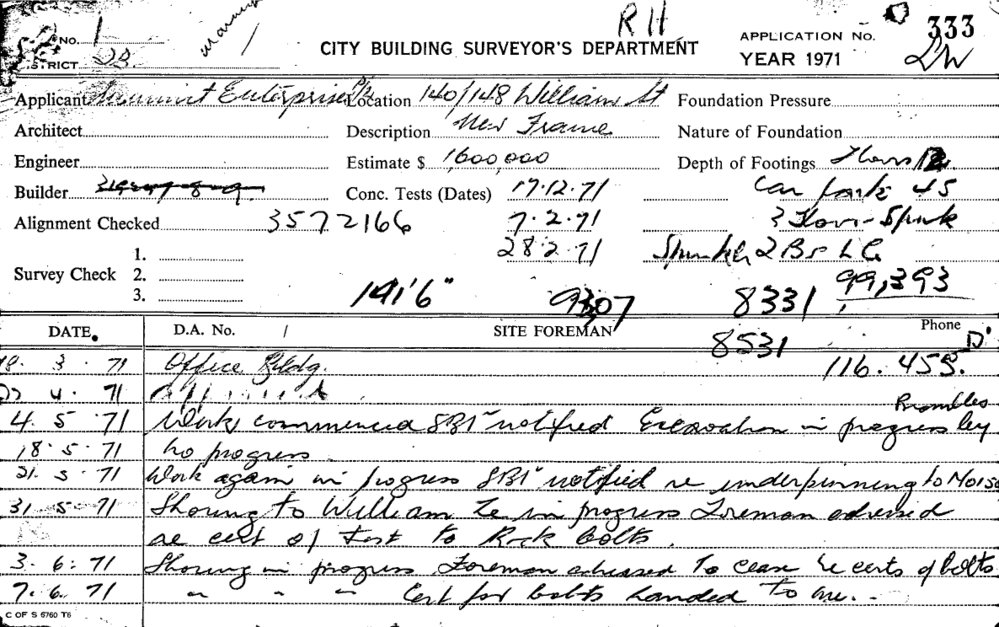 RH
No. 1
CITY BUILDING SURVEYOR'S DEPARTMENT
APPLICATION No. 333
YEAR 1971
Applicant Enterprises Location 140/148 William St Foundation Pressure
Architect Description New Frame Nature of Foundation
Engineer Estimate $ 1600,000 Depth of Footings
Builder Conc. Tests (Dates) 17.12.71 Car park 45
Alignment Checked 3572166 7.2.71 3
28.2.71
Survey Check 1.
2.
3.
191'6" 9307 8331 99,393
DATE. D.A. No. / SITE FOREMAN Phone
8531 116.455.
3.71 Office Bldg.
4.71
4.5.71 Work commenced notified Excavation in progress by Brambles
18.5.71 No progress
21.5.71 Work again in progress notified re underpinning to
31.5.71 Shoring to William in progress Foreman advised
re cert of test to Rock bolts.
3.6.71 Shoring in progress Foreman advised to re certs of bolts
7.6.71 " " " Cert for bolts handed to me.
C OF S 6760 T6